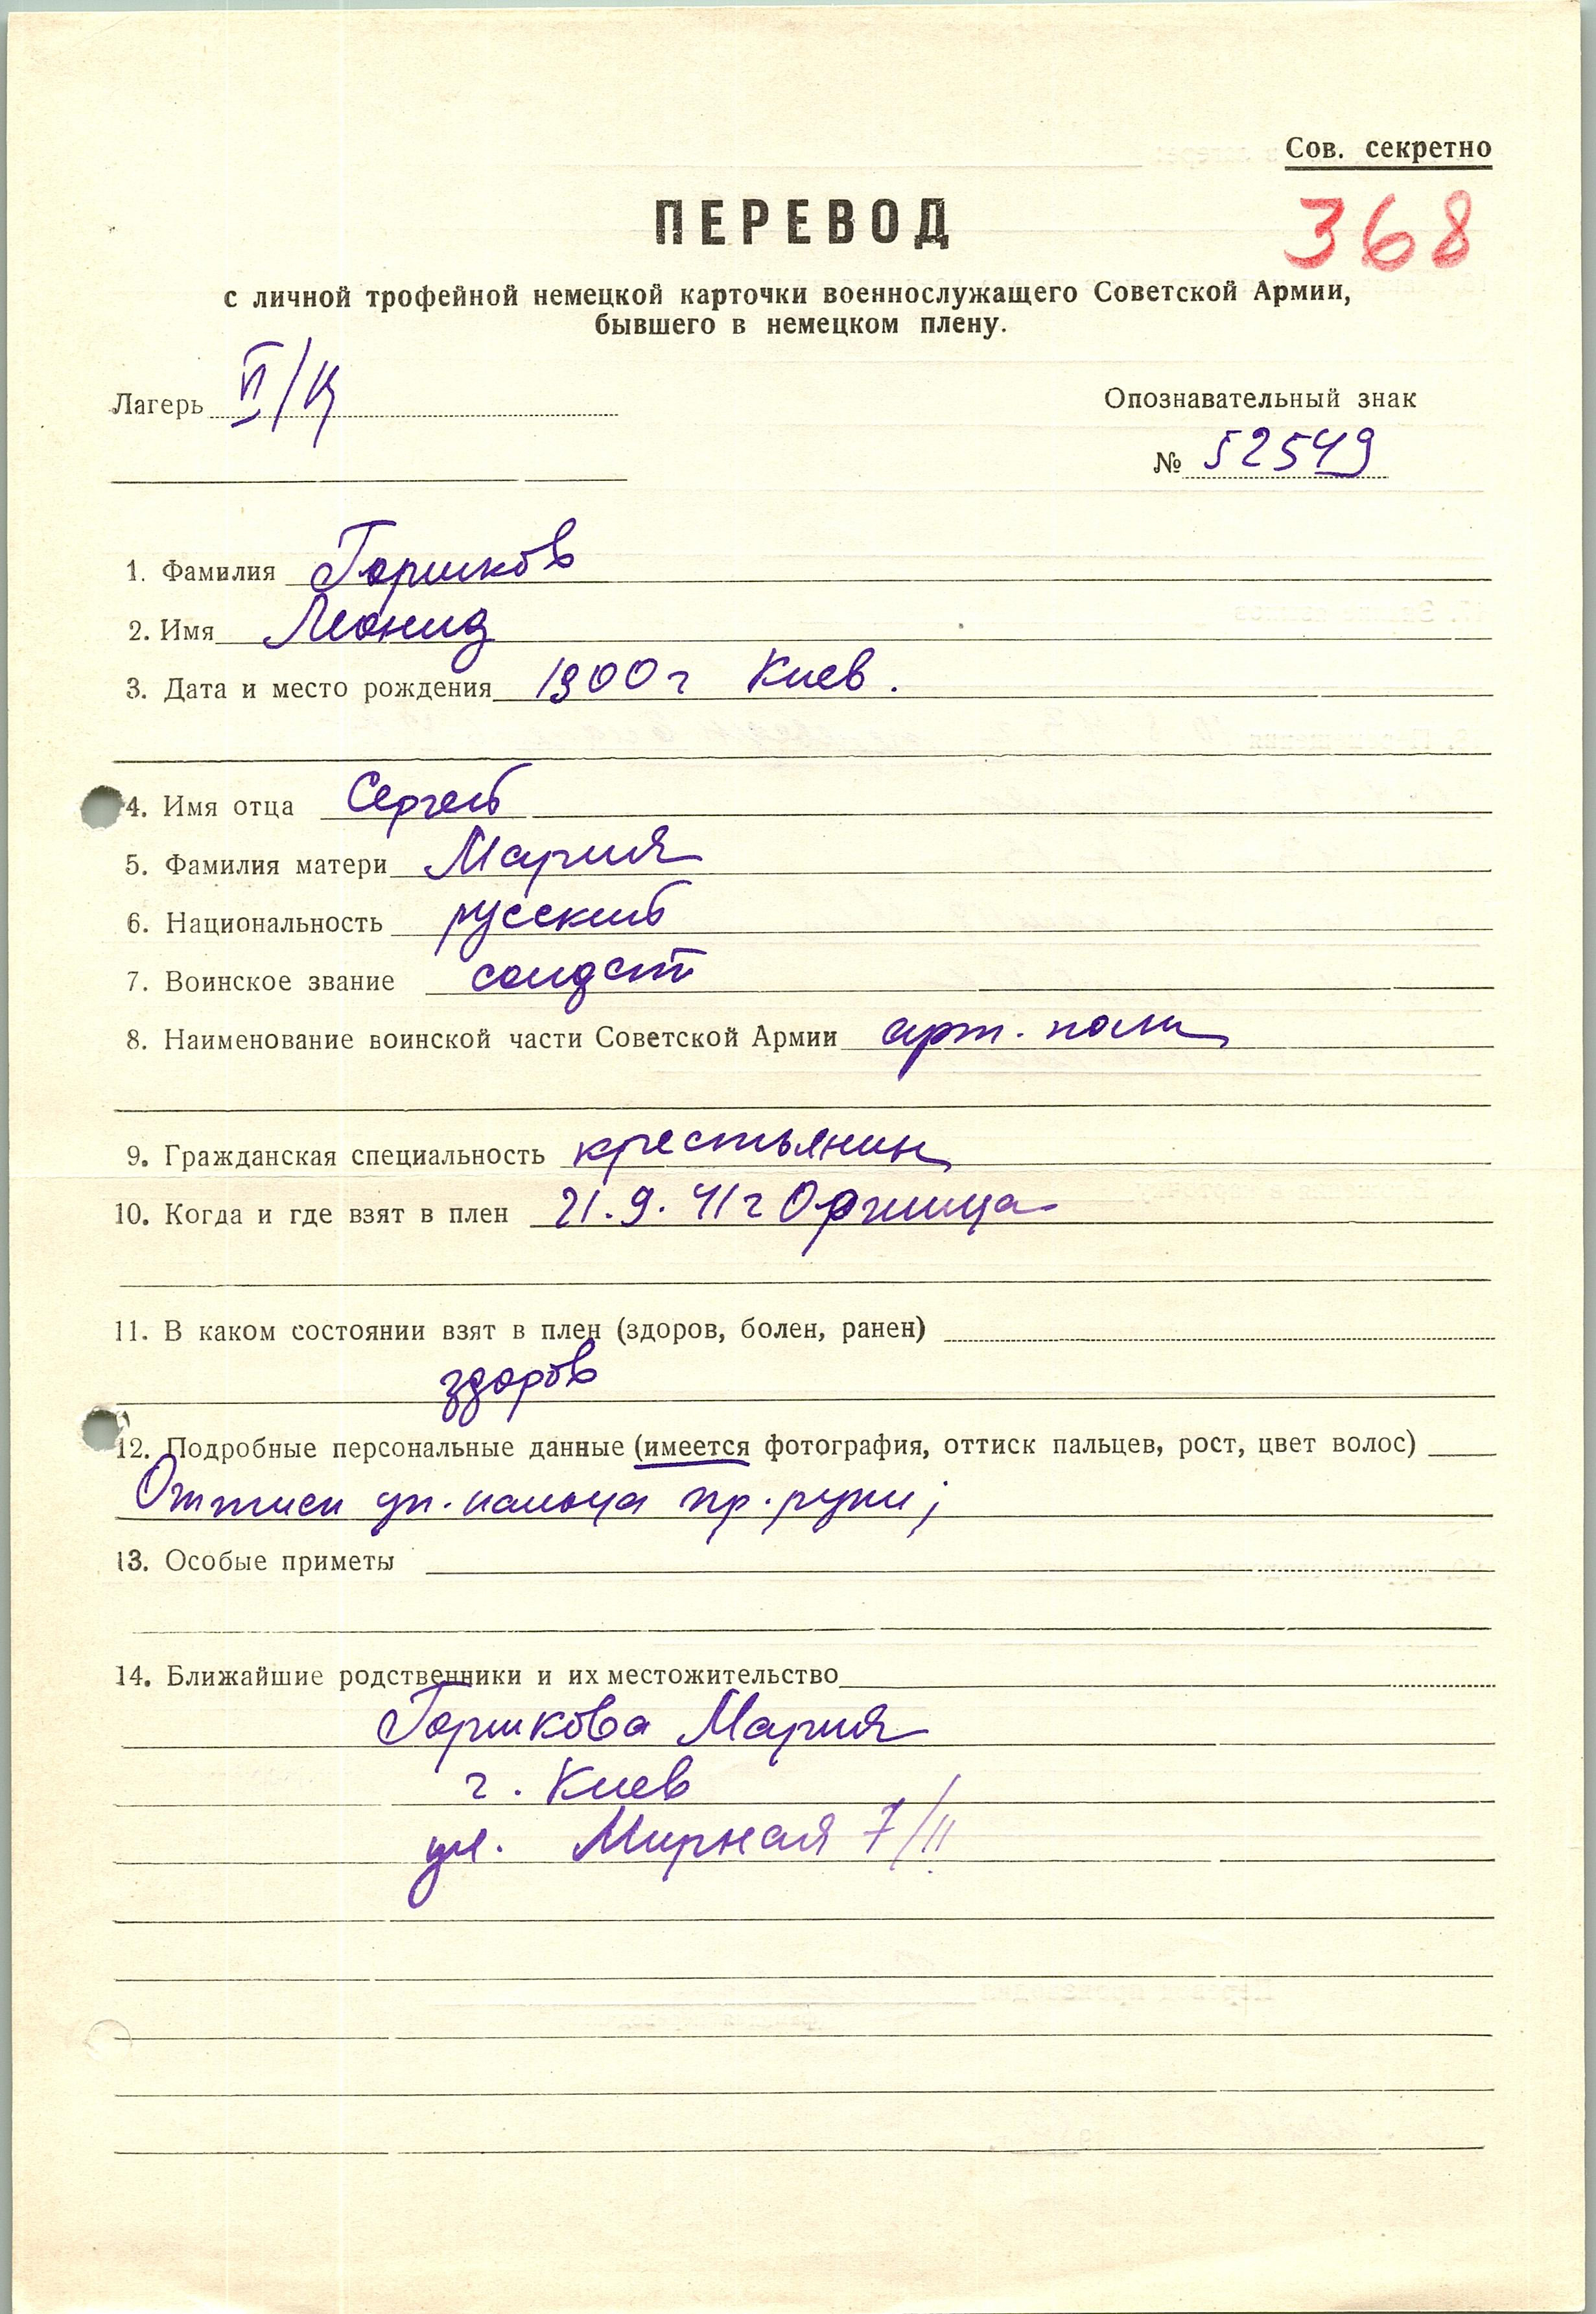 Сов. секретно
ПЕРЕВОД
368
с личной трофейной немецкой карточки военнослужащего Советской Армии,
бывшего в немецком плену.
Лагерь VI/К
Опознавательный знак
№ 52549
1. Фамилия Горшков
2. Имя Леонид
3. Дата и место рождения 1900 г Киев.
4. Имя отца Сергей
5. Фамилия матери Мария
6. Национальность русский
7. Воинское звание солдат
8. Наименование воинской части Советской Армии арт. полк
9. Гражданская специальность крестьянин
10. Когда и где взят в плен 21.9.41 г Оржица
11. В каком состоянии взят в плен (здоров, болен, ранен)
здоров
12. Подробные персональные данные (имеется фотография, оттиск пальцев, рост, цвет волос)
Оттиск ук. пальца пр. руки;
13. Особые приметы
14. Ближайшие родственники и их местожительство
Горшкова Мария
г. Киев
ул. Мирная 7/11